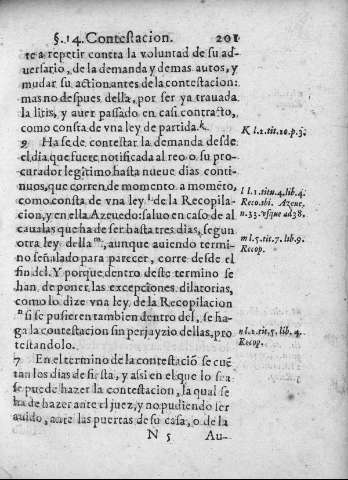 §.14. Contestacion. 201
te a repetir contra la voluntad de su ad-
uersario, de la demanda y demas autos, y
mudar su action antes de la contestacion:
mas no despues della, por ser ya trauada
la litis, y auer passado en casi contracto,
como consta de vna ley de partida. k
K l.2. tit. 10. p. 3.
9 Ha se de contestar la demanda desde
el dia que fuere notificada al reo o su pro-
curador legitimo hasta nueue dias conti-
nuos, que corren de momento a momēto,
como consta de vna ley l de la Recopila-
cion, y en ella Azeuedo: saluo en caso de al
caualas que ha de ser hasta tres dias, segun
otra ley della m, aunque auiendo termi-
no señalado para parecer, corre desde el
fin del. Y porque dentro deste termino se
han de poner las excepciones dilatorias,
como lo dize vna ley de la Recopilacion
n si se pusieren tambien dentro del, se ha-
ga la contestacion sin perjuyzio dellas, pro
testandolo.
l l.1. titu. 4. lib. 4.
Reco. vbi. Azeue.
n. 33. vsque ad 38.
m l.5. tit. 7. lib. 9.
Recop.
n l.2. tit. 5. lib. 4.
Recop.
7 En el termino de la contestaciō se cuē
tan los dias de fiesta, y assi en el que lo sea
se puede hazer la contestacion, la qual se
ha de hazer ante el juez, y no pudiendo ser
auido, ante las puertas de su casa, o de la
N 5 Au-